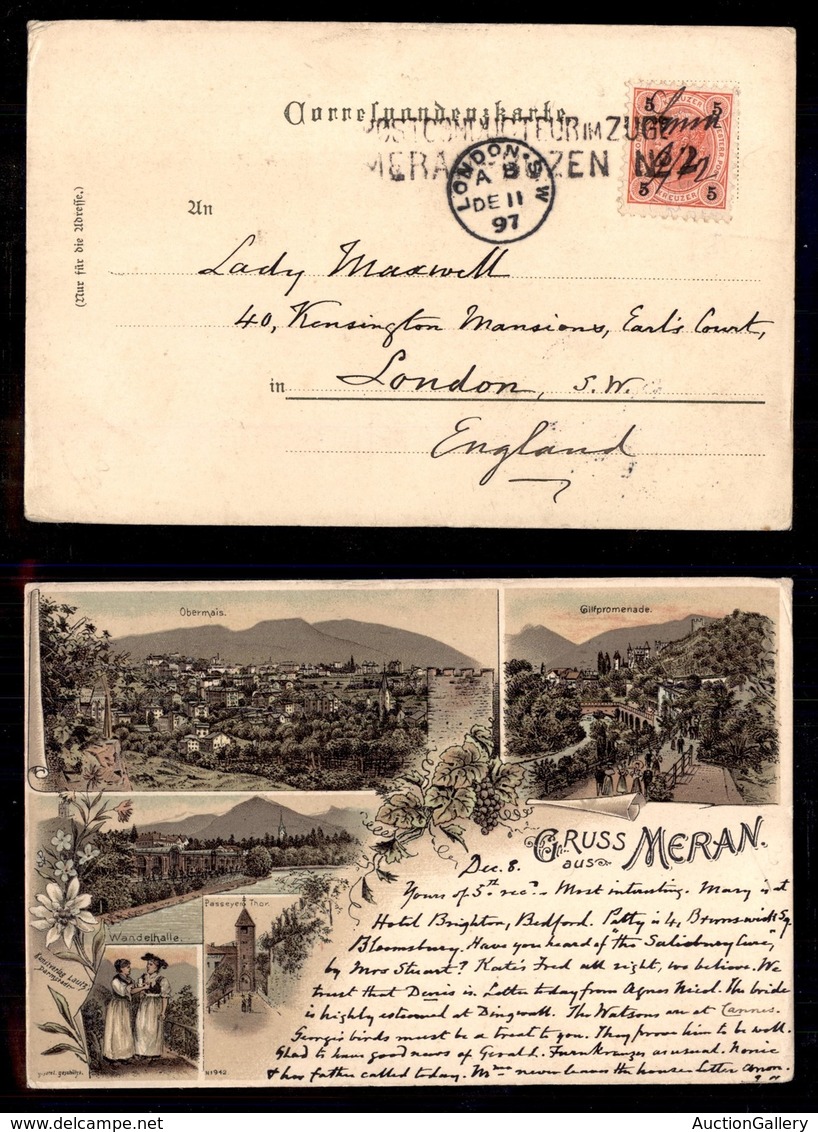 Correspondenzkarte.
POSTCONDUCTEUR IM ZUGE
MERAN-BOZEN No 21
5 KREUZER 5
5 KREUZER 5
LONDON·S.W
A B
DE 11
97
(Nur für die Adresse.)
An
Lady Maxwell
40, Kensington Mansions, Earl's Court,
in London, S.W.
England
Obermais.
Gilfpromenade.
Wandelhalle.
Passeyer Thor.
GRUSS aus MERAN.
Kunstverlag Lautz, Darmstadt
Gesetzl. geschützt.
N 1942
Dec. 8.
Yours of 5th recd. Most interesting. Mary is at
Hotel Brighton, Bedford. Patty is 4, Brunswick Sq.
Bloomsbury. Have you heard of "the Salisbury Cure",
by Mrs Stuart? Kate's Fred all right, we believe. We
trust that Denis is. Letter today from Agnes Nicol. The bride
is highly esteemed at Dingwall. The Watsons are at Cannes.
Georgie's birds must be a treat to you. They prove him to be well.
Glad to have good news of Gerald. as usual.
& has father called today. never leaves the house. Letter anon.